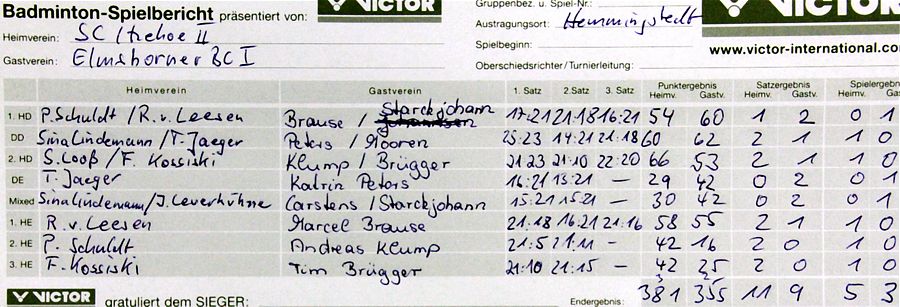 Badminton-Spielbericht präsentiert von: VICTOR
Gruppenbez. u. Spiel-Nr.:
Austragungsort: Hemmingstedt
Heimverein: SC Itzehoe II
Spielbeginn:
www.victor-international.co
Gastverein: Elmshorner BC I
Oberschiedsrichter/Turnierleitung:
Heimverein Gastverein 1. Satz 2. Satz 3. Satz Punktergebnis Heimv. Gastv. Satzergebnis Heimv. Gastv. Spielergeb Heimv. Gast
1. HD P. Schuldt / R. v. Leesen Brause / Starckjohann 17:21 21:18 16:21 54 60 1 2 0 1
DD Sina Lindemann / T. Jaeger Peters / Mooren 25:23 14:21 21:18 60 62 2 1 1 0
2. HD S. Looß / F. Kossiski Klump / Brügger 21:23 21:10 22:20 66 53 2 1 1 0
DE T. Jaeger Katrin Peters 16:21 13:21 – 29 42 0 2 0 1
Mixed Sina Lindemann / J. Leverkühne Carstens / Starckjohann 15:21 15:21 – 30 42 0 2 0 1
1. HE R. v. Leesen Marcel Brause 21:18 16:21 21:16 58 55 2 1 1 0
2. HE P. Schuldt Andreas Klump 21:5 21:11 – 42 16 2 0 1 0
3. HE F. Kossiski Tim Brügger 21:10 21:15 – 42 25 2 0 1 0
VICTOR gratuliert dem SIEGER: Endergebnis: 381 355 11 9 5 3